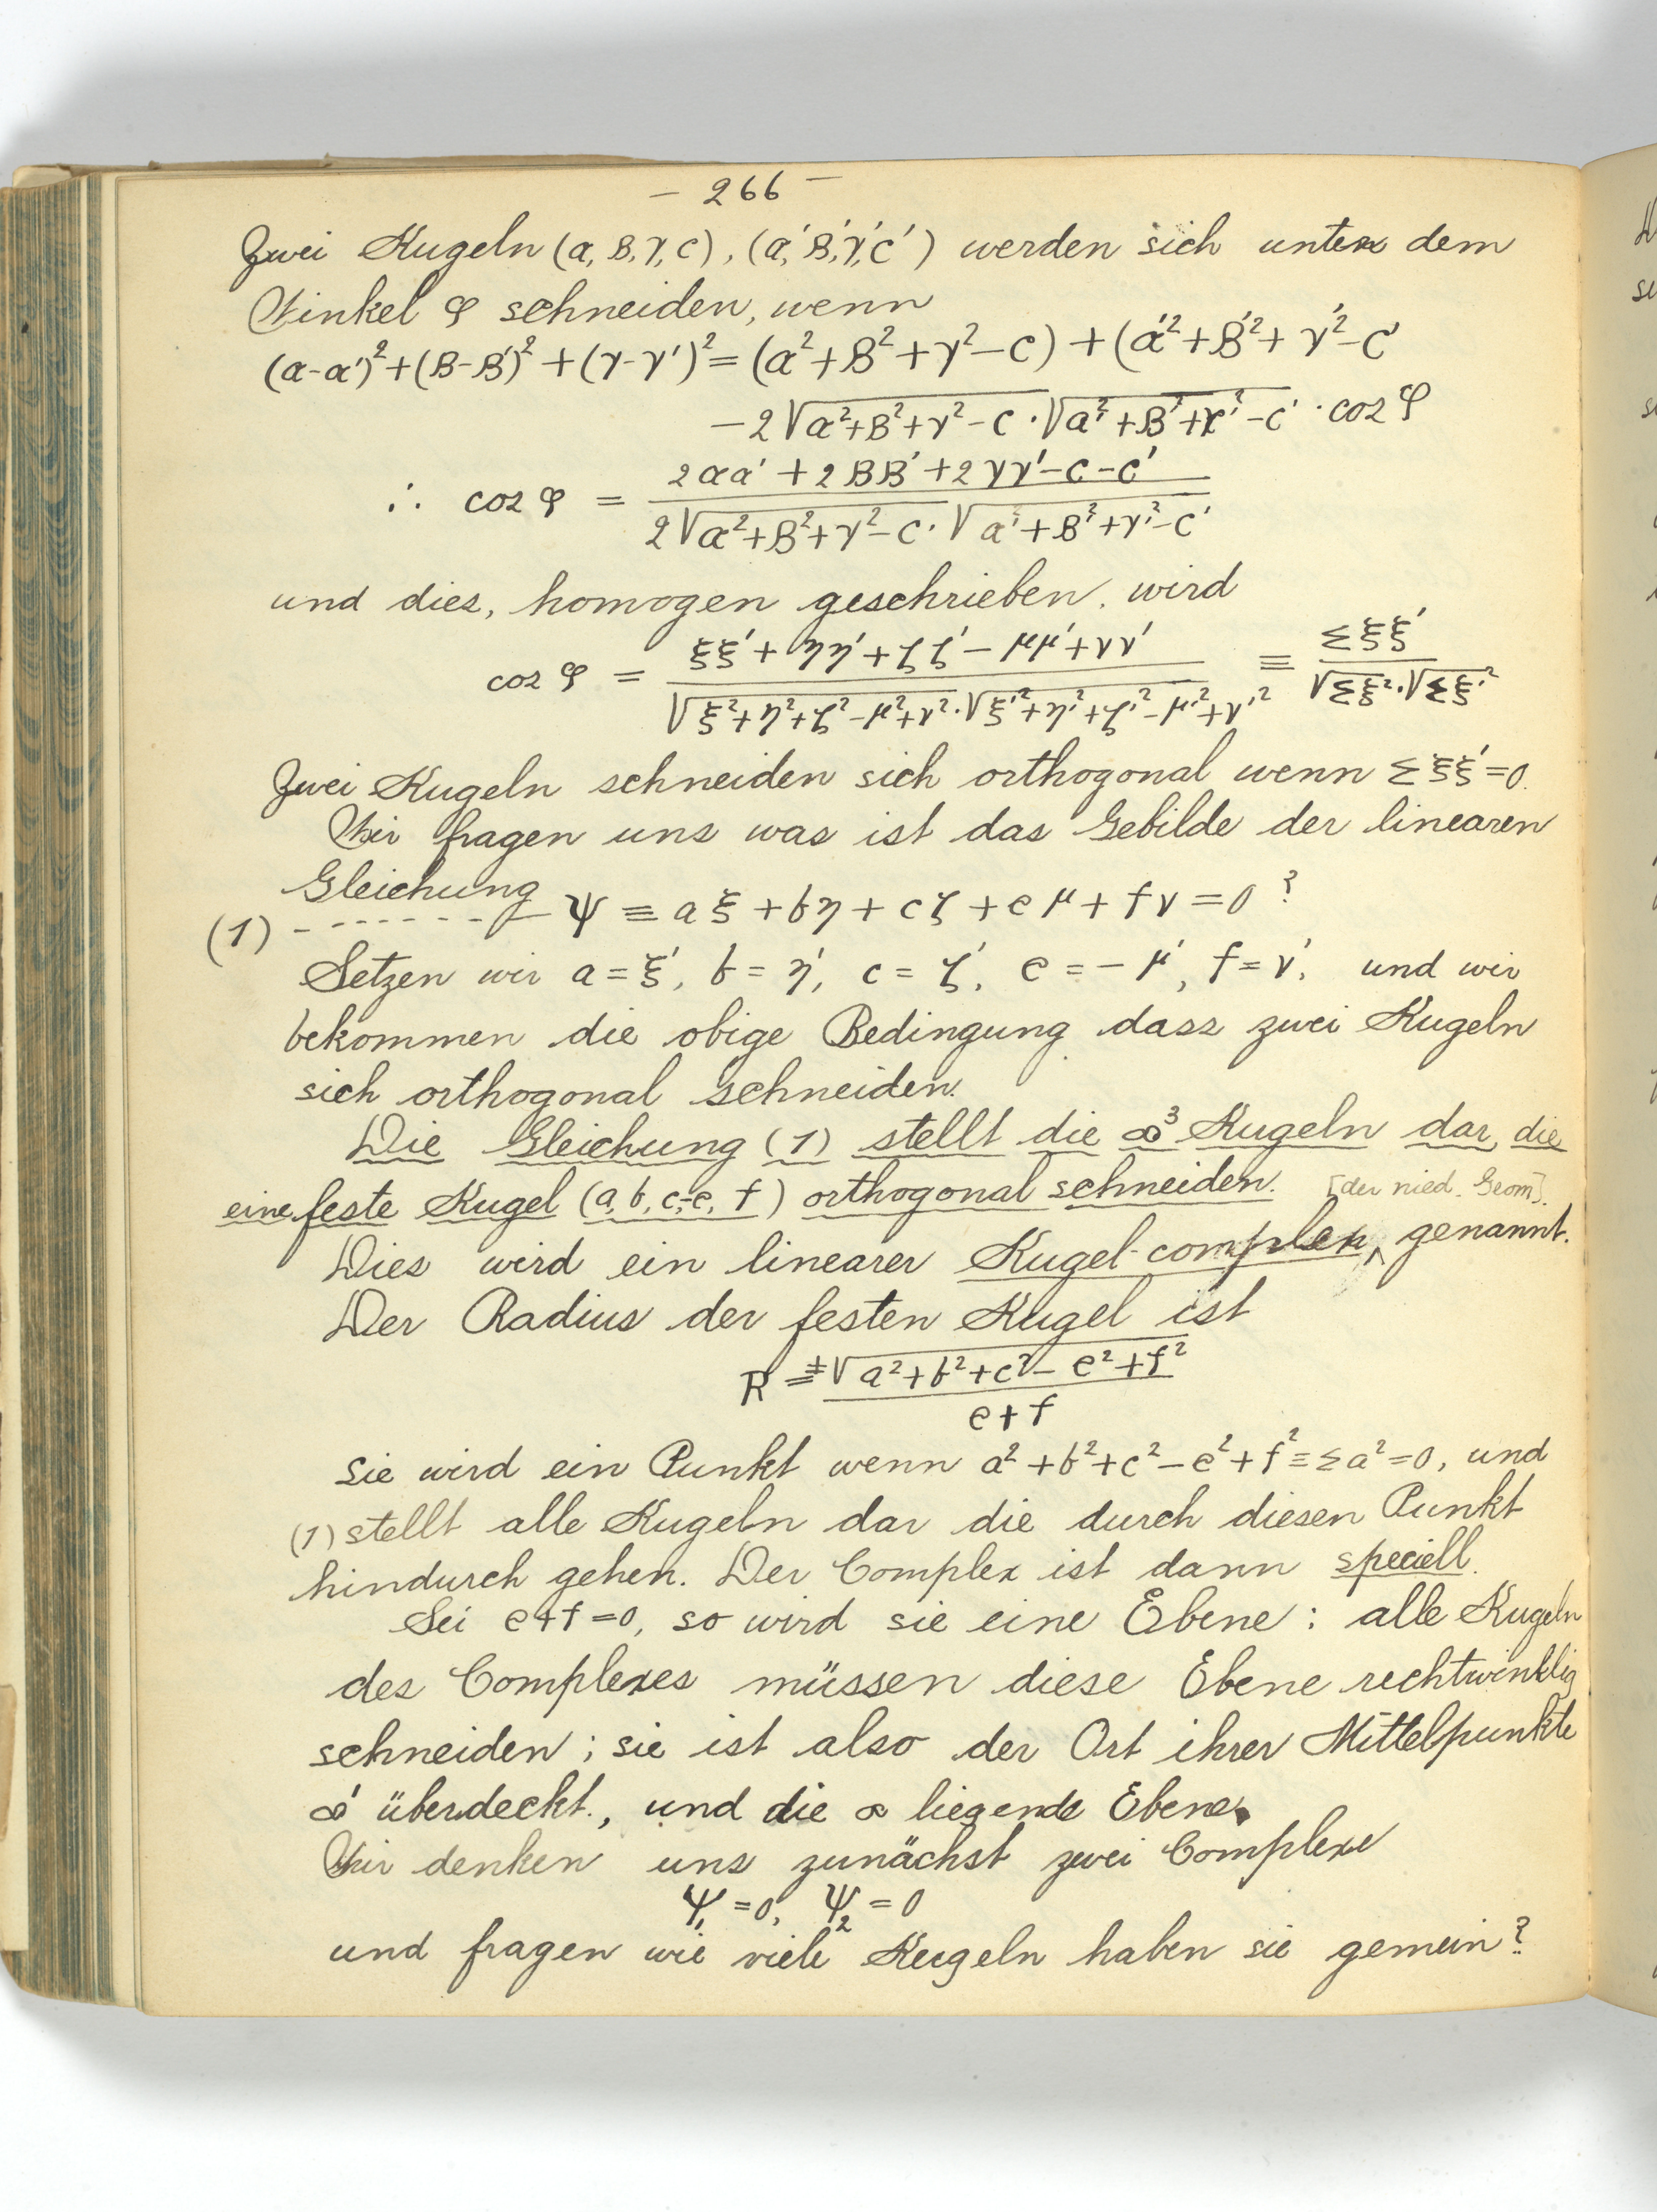 – 266 –
Zwei Kugeln (α, β, γ, c), (α', β', γ', c') werden sich unter dem
Winkel φ schneiden, wenn
(α-α')² + (β-β')² + (γ-γ')² = (α²+β²+γ²-c) + (α'²+β'²+γ'²-c'
-2√α²+β²+γ²-c · √α'²+β'²+γ'²-c' · cos φ
∴ cos φ = (2αα' + 2ββ' + 2γγ' - c - c') / (2√α²+β²+γ²-c · √α'²+β'²+γ'²-c')
und dies, homogen geschrieben, wird
cos φ = (ξξ' + ηη' + ζζ' - μμ' + νν') / (√ξ²+η²+ζ²-μ²+ν² · √ξ'²+η'²+ζ'²-μ'²+ν'²) ≡ Σξξ' / (√Σξ² · √Σξ'²)
Zwei Kugeln schneiden sich orthogonal wenn Σξξ' = 0.
Wir fragen uns was ist das Gebilde der linearen
Gleichung
(1) - - - - - - - Ψ ≡ aξ + bη + cζ + eμ + fν = 0 ?
Setzen wir a = ξ', b = η', c = ζ', e = -μ', f = ν', und wir
bekommen die obige Bedingung dass zwei Kugeln
sich orthogonal schneiden.
Die Gleichung (1) stellt die ∞³ Kugeln dar, die
eine feste Kugel (a, b, c, -e, f) orthogonal schneiden. [der nied. Geom].
Dies wird ein linearer Kugel-complex ^ genannt.
Der Radius der festen Kugel ist
R = ±√a²+b²+c²-e²+f² / (e+f)
sie wird ein Punkt wenn a²+b²+c²-e²+f² ≡ Σa² = 0, und
(1) stellt alle Kugeln dar die durch diesen Punkt
hindurch gehen. Der Complex ist dann speciell.
Sei e+f = 0, so wird sie eine Ebene : alle Kugeln
des Complexes müssen diese Ebene rechtwinklig
schneiden ; sie ist also der Ort ihrer Mittelpunkte
∞' überdeckt., und die ∞ liegende Ebene.
Wir denken uns zunächst zwei Complexe
Ψ₁ = 0, Ψ₂ = 0
und fragen wie viele Kugeln haben sie gemein ?